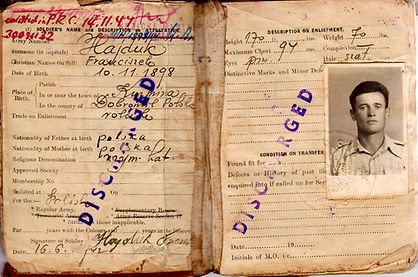 enlisted in P.R.C. 19.11.47
30094182
I. SOLDIER'S NAME and DESCRIPTION on ATTESTATION.
Army Number
Surname (in capitals) Hajduk
Christian Names (in full) Franciszek
Date of Birth 10.11.1898
Place of Birth
Parish
In or near the town of
In the county of Dobromil Polska
Trade on Enlistment rolnik
Nationality of Father at birth polska
Nationality of Mother at birth polska
Religious Denomination rzym. kat.
Approved Society
Membership No.
Enlisted at On
For the Polish
* Regular Army. * Supplementary Reserve.
* Army Reserve
* Strike out those inapplicable.
For years with the Colours and years in the
Signature of Soldier Hajduk
Date 16.6.
DISCHARGED
DESCRIPTION ON ENLISTMENT.
Height 170 Weight 70
Maximum Chest 94 Complexion
Eyes Hair
Distinctive Marks and Minor Defects
CONDITION ON TRANSFER
Found fit for
Defects or History of past
enquired into if called up for Ser
Date 19
Initials of M.O. i/c.
DISCHARGED